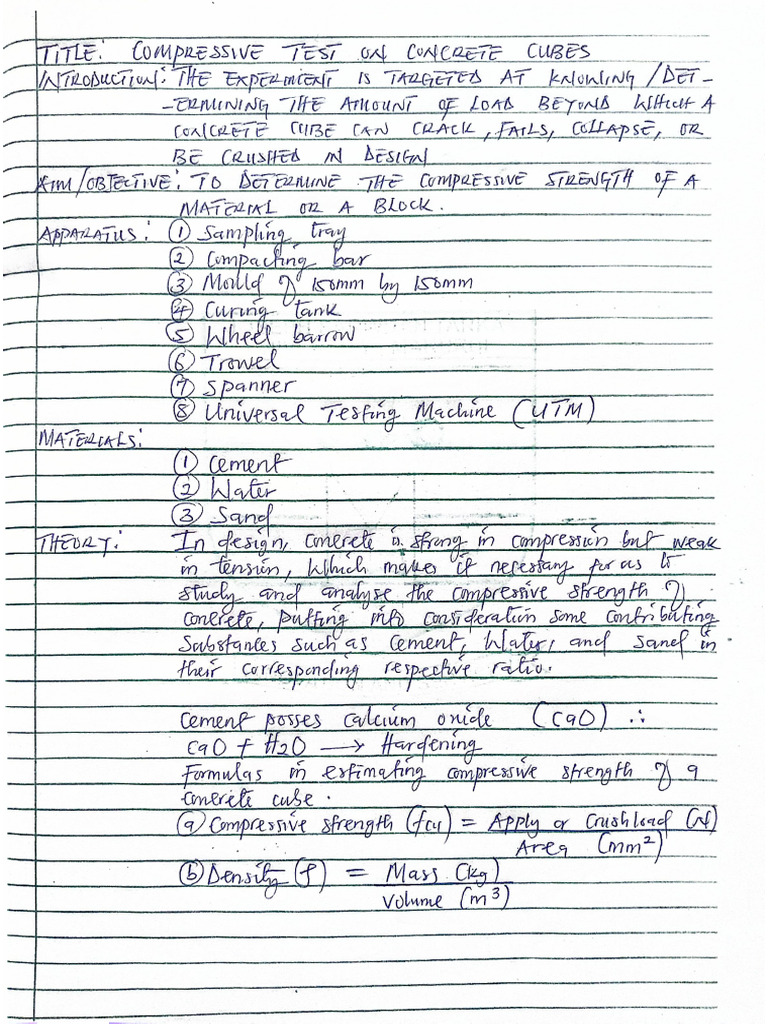 TITLE: COMPRESSIVE TEST ON CONCRETE CUBES
INTRODUCTION: THE EXPERIMENT IS TARGETED AT KNOWING/DET-
-ERMINING THE AMOUNT OF LOAD BEYOND WHICH A
CONCRETE CUBE CAN CRACK, FAILS, COLLAPSE, OR
BE CRUSHED IN DESIGN
AIM/OBJECTIVE: TO DETERMINE THE COMPRESSIVE STRENGTH OF A
MATERIAL OR A BLOCK.
APPARATUS: ① Sampling tray
② Compacting bar
③ Mould of 150mm by 150mm
④ Curing tank
⑤ Wheel barrow
⑥ Trowel
⑦ Spanner
⑧ Universal Testing Machine (UTM)
MATERIALS:
① Cement
② Water
③ Sand
THEORY: In design, concrete is strong in compression but weak
in tension, which makes it necessary for us to
study and analyse the compressive strength of
concrete, putting into consideration some contributing
Substances such as cement, Water, and Sand in
their corresponding respective ratio.
Cement posses calcium oxide (CaO) ∴
CaO + H2O → Hardening
Formulas in estimating compressive strength of a
concrete cube.
ⓐ Compressive strength (fcu) = Apply or Crush load (N)
Area (mm²)
ⓑ Density (ρ) = Mass (kg)
Volume (m³)